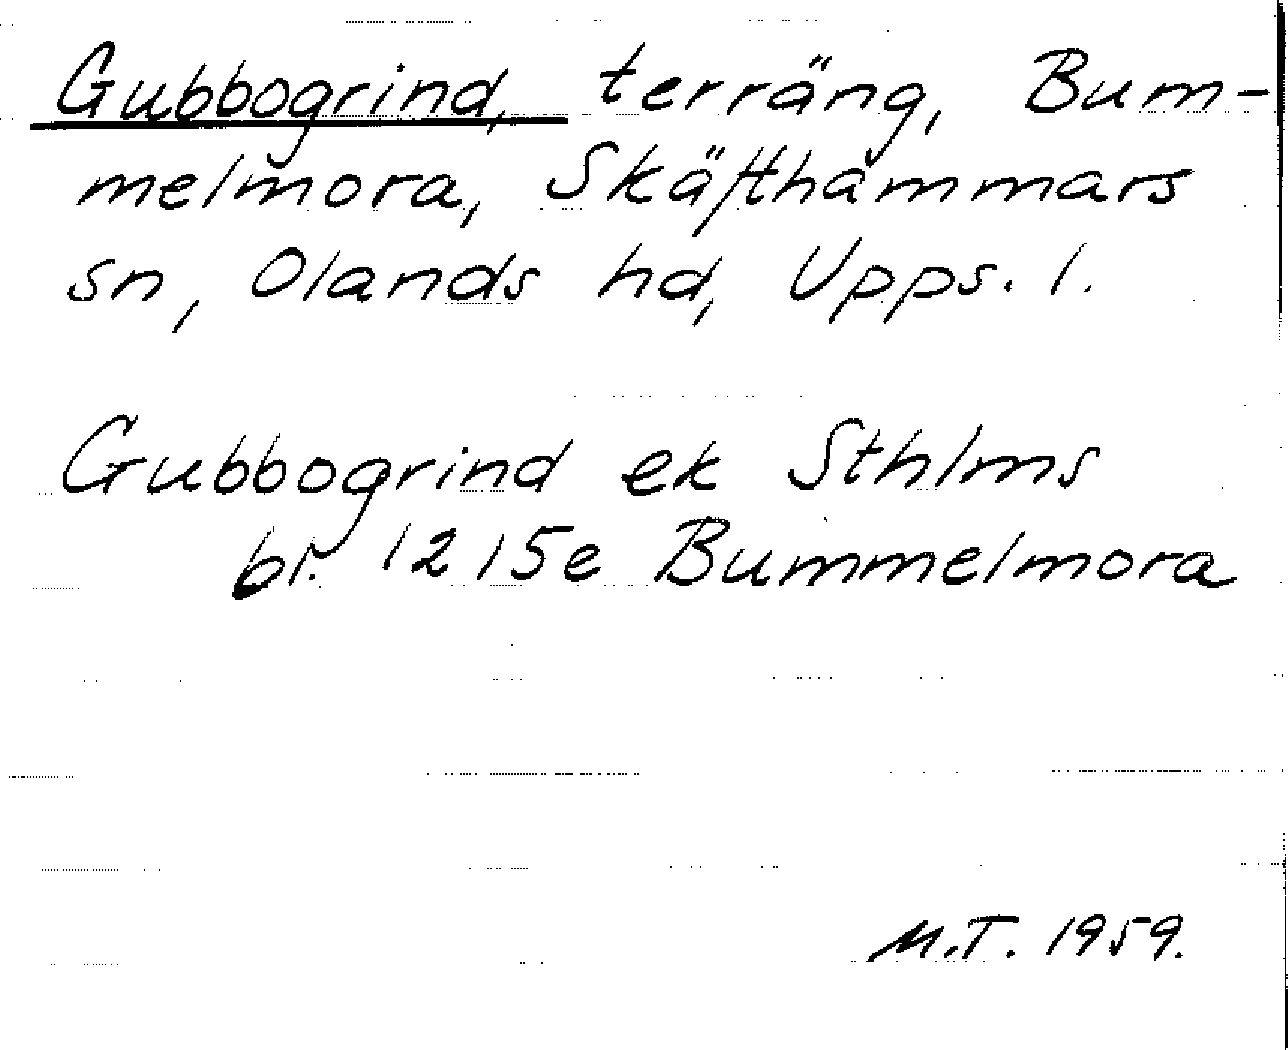 Gubbogrind, terräng, Bum-
melmora, Skäfthammars
sn, Olands hd, Upps. l.
Gubbogrind ek Sthlms
bl. 12 I 5e Bummelmora
M.T. 1959.